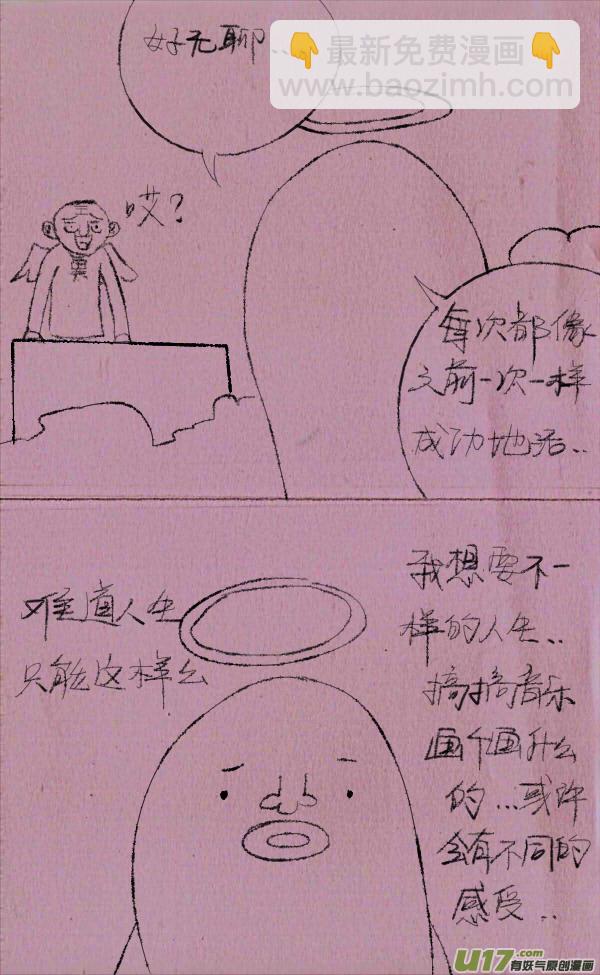 好无聊...
👇最新免费漫画👇
www.baozimh.com
哎?
每次都像
之前一次一样
成功地活..
难道人生
只能这样么
我想要不一
样的人生..
搞搞音乐
画个画什么
的...或许
会有不同的
感受..
U17.com
有妖气原创漫画